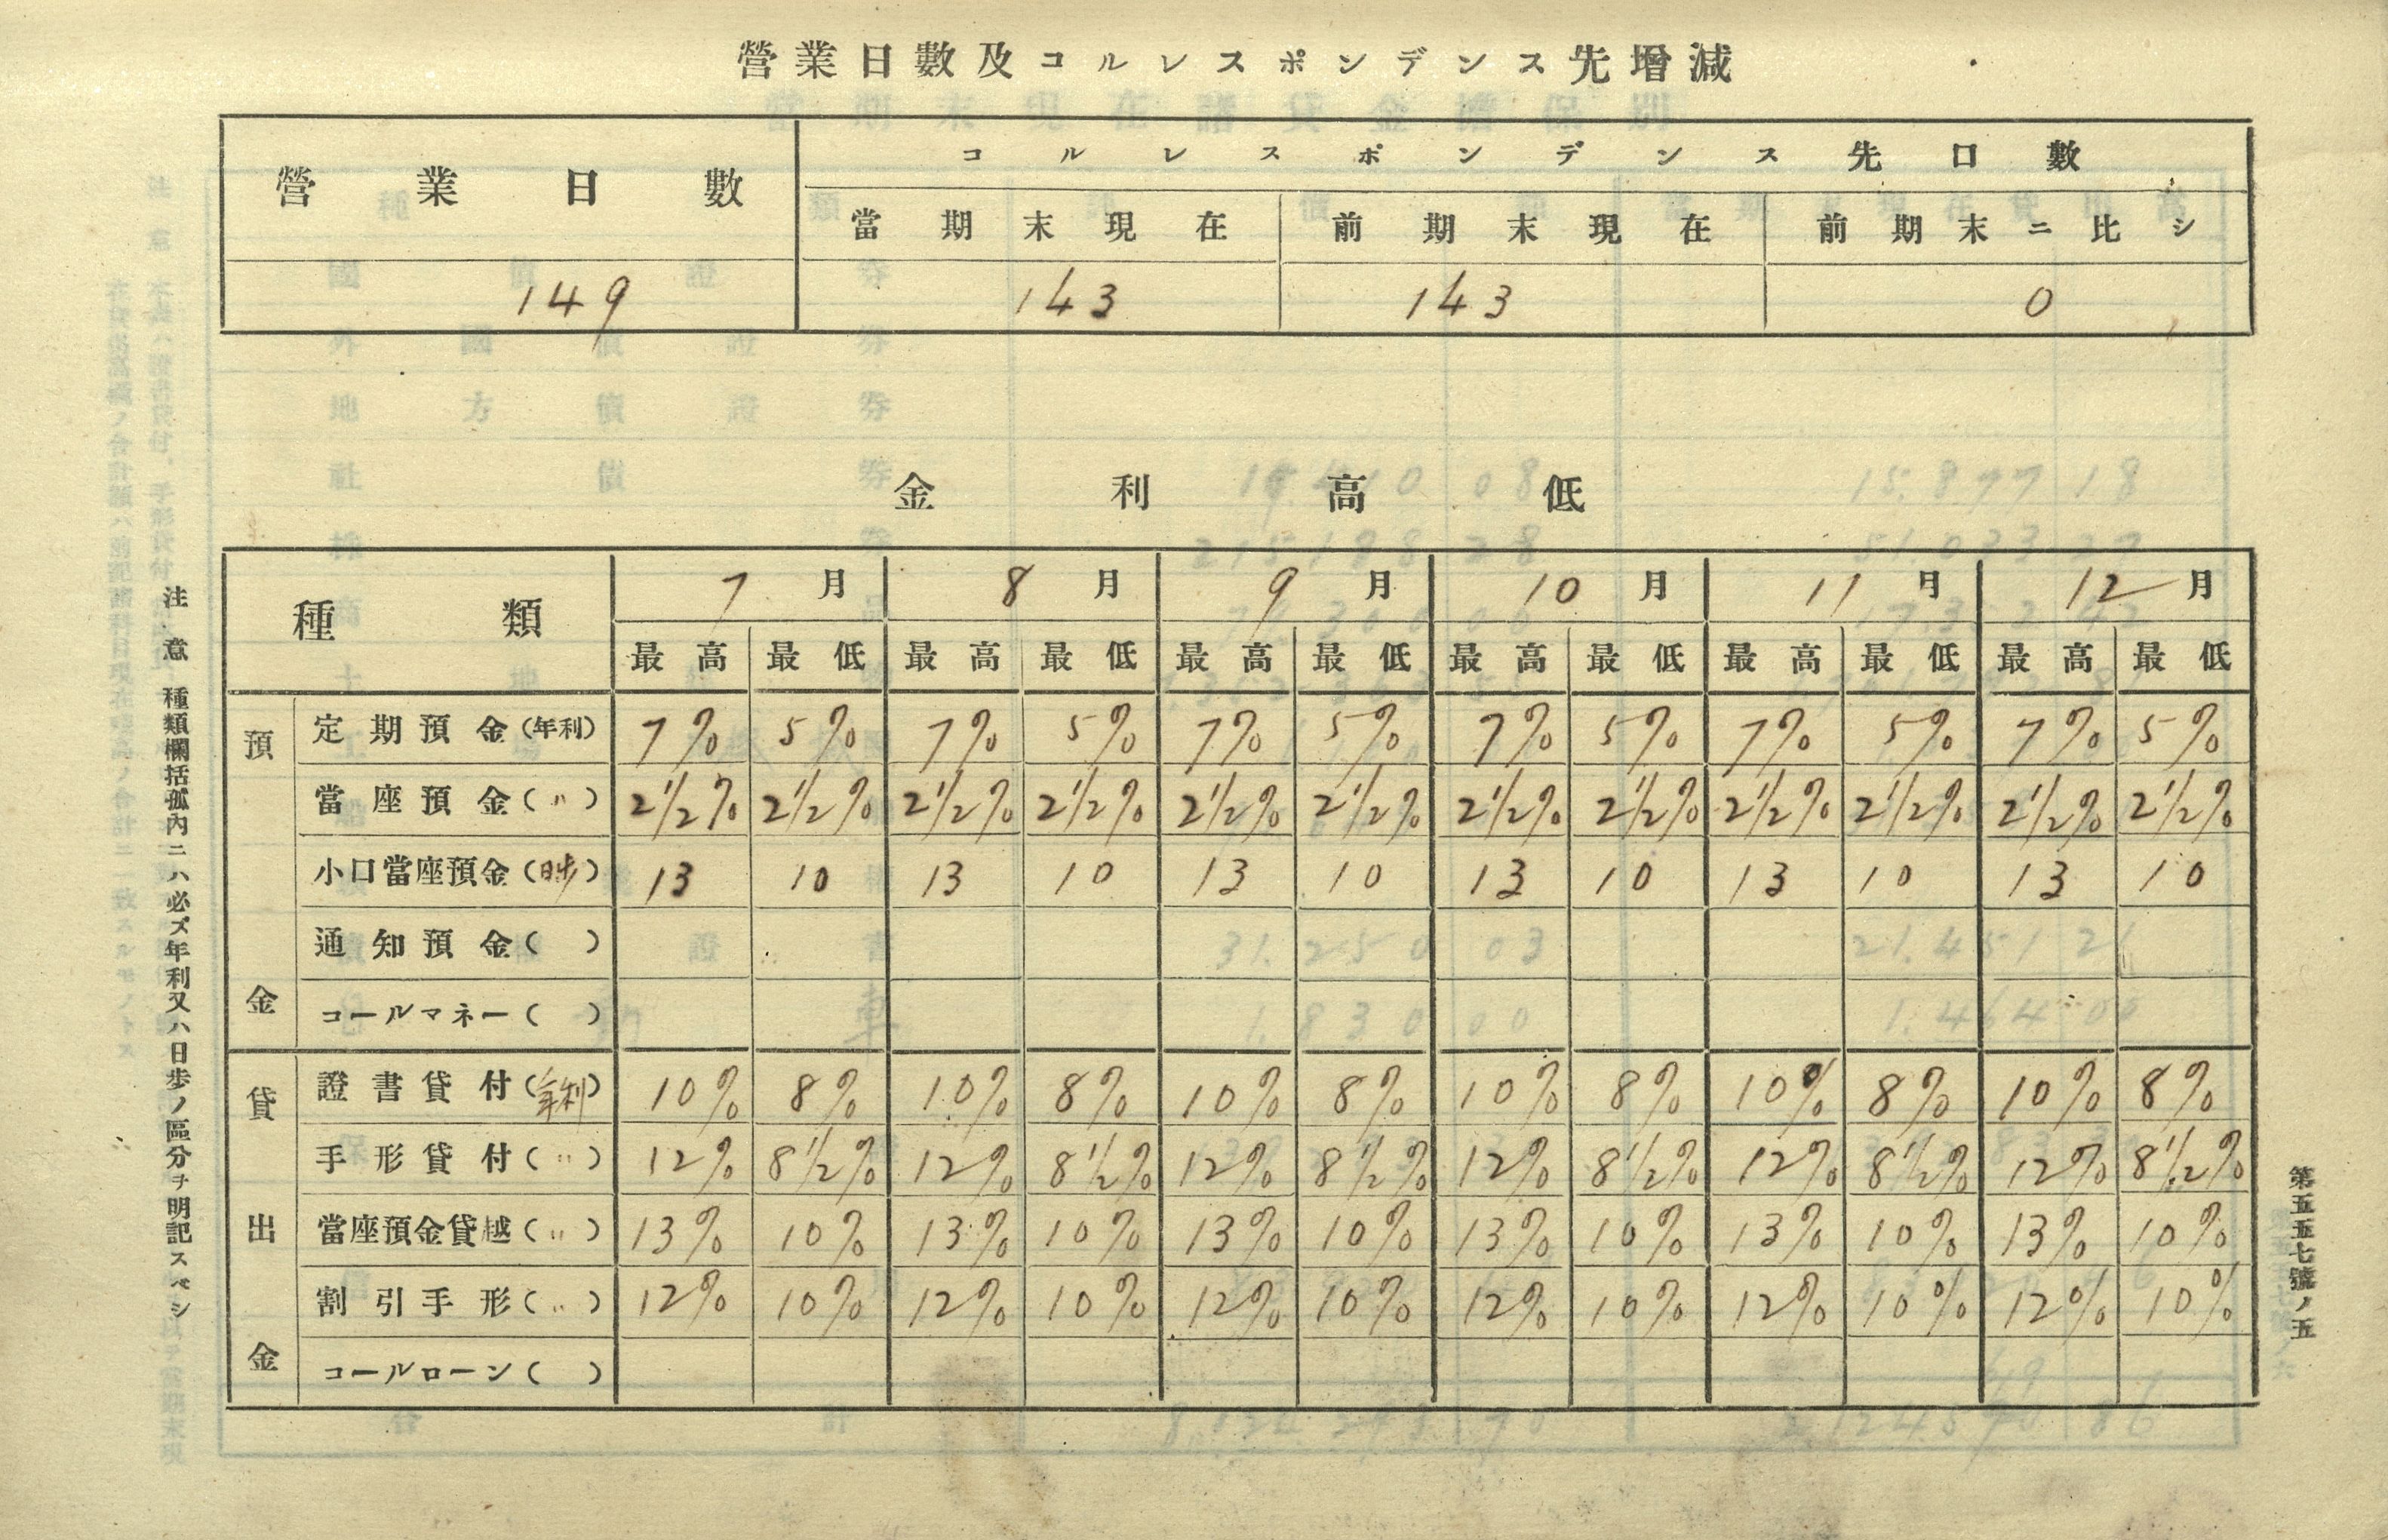 營業日數及コルレスポンデンス先增減
營業日數 コルレスポンデンス先口數
當期末現在 前期末現在 前期末ニ比シ
149 143 143 0
金利高低
種類 7月 8月 9月 10月 11月 12月
最高 最低 最高 最低 最高 最低 最高 最低 最高 最低 最高 最低
預金
定期預金(年利) 7% 5% 7% 5% 7% 5% 7% 5% 7% 5% 7% 5%
當座預金(〃) 2 1/2% 2 1/2% 2 1/2% 2 1/2% 2 1/2% 2 1/2% 2 1/2% 2 1/2% 2 1/2% 2 1/2% 2 1/2% 2 1/2%
小口當座預金(日步) 13 10 13 10 13 10 13 10 13 10 13 10
通知預金( )
コールマネー( )
貸出金
證書貸付(年利) 10% 8% 10% 8% 10% 8% 10% 8% 10% 8% 10% 8%
手形貸付(〃) 12% 8 1/2% 12% 8 1/2% 12% 8 1/2% 12% 8 1/2% 12% 8 1/2% 12% 8 1/2%
當座預金貸越(〃) 13% 10% 13% 10% 13% 10% 13% 10% 13% 10% 13% 10%
割引手形(〃) 12% 10% 12% 10% 12% 10% 12% 10% 12% 10% 12% 10%
コールローン( )
注意 種類欄括孤內ニハ必ズ年利又ハ日歩ノ區分ヲ明記スベシ
第五五七號ノ五